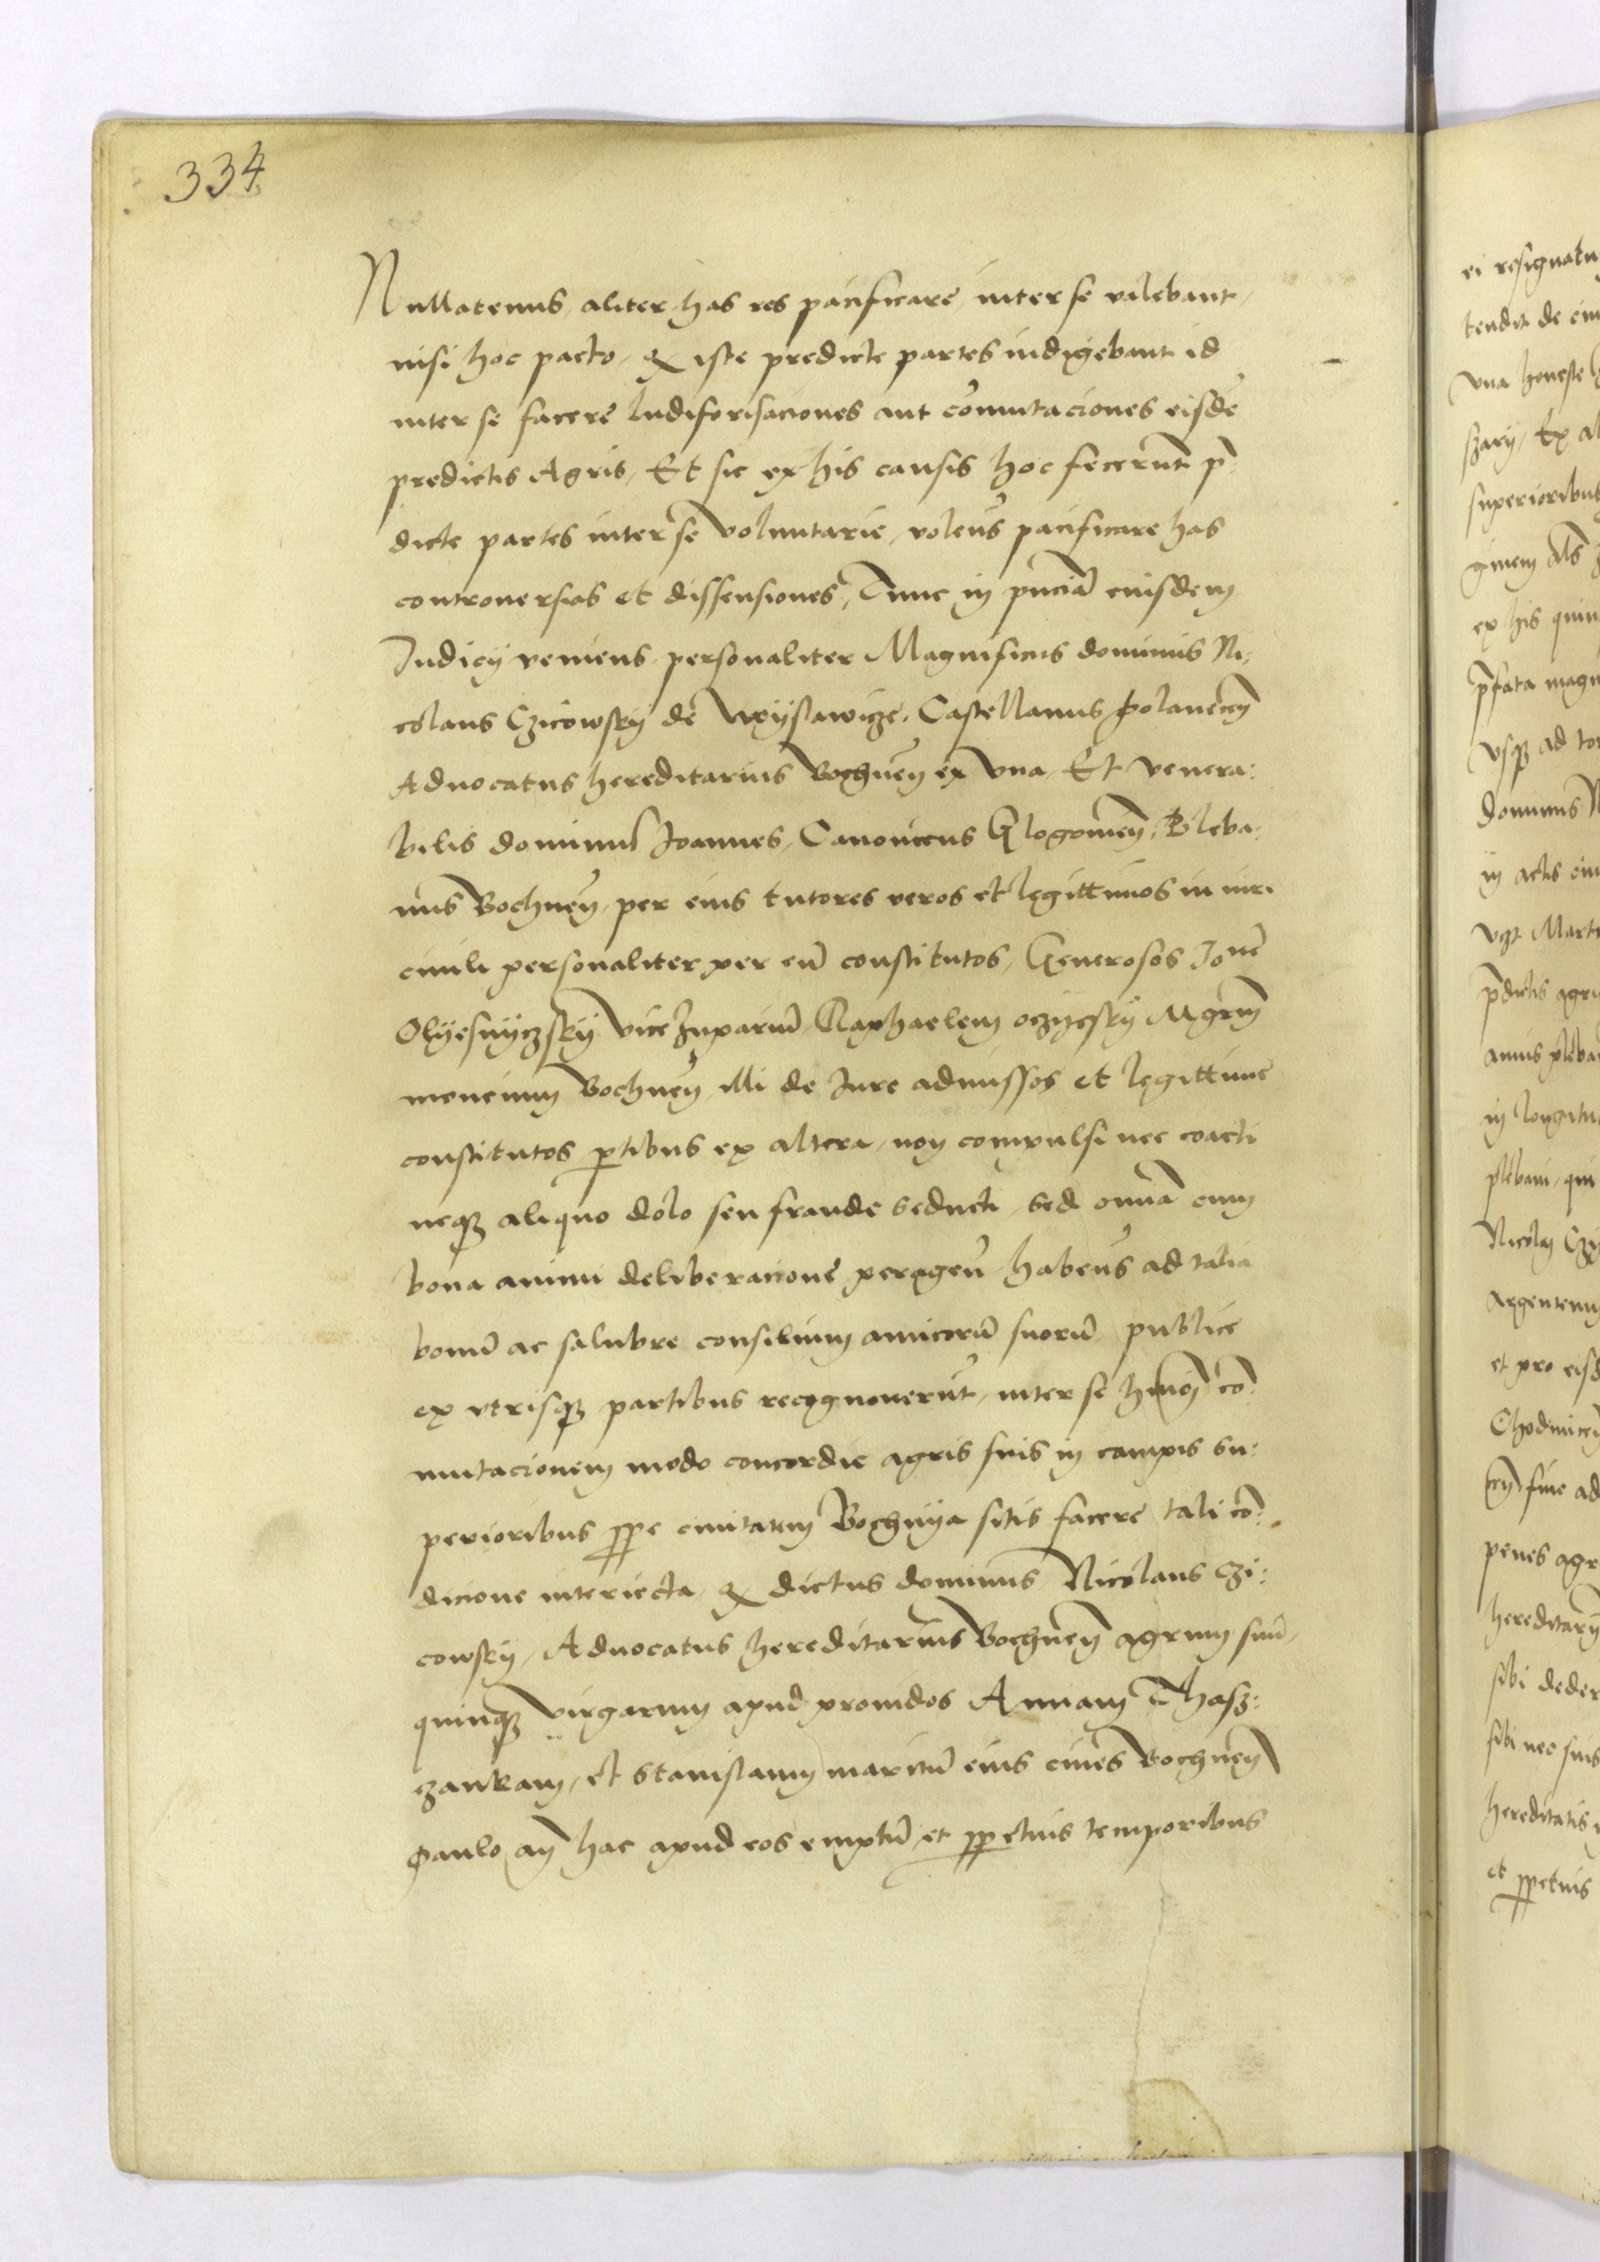 334
Nullatenus, aliter has res pacificare inter se valebant,
nisi hoc pacto, qͫ iste predicte partes indigebant id
inter se facere ludifrisaciones aut cōmutaciones eisdē
predictis Agris, Et sic ex his causis hoc fecerūt p̄:
dicte partes inter se voluntarie, volen̄s pacificare has
controuersias et dissensiones, Tunc in pn̄ciā euisdem
Iudicy veniens personaliter Magnificus dominus Ni:
colaus Czicowsky de Woyslawicze, Castellanus polanecen̄
Aduocatus hereditarius Bochnen̄ ex vna, Et venera:
bilis dominus Joannes, Canonicus Glogouien̄, Pleba:
nus Bochnen̄, per eius tutores veros et legittimos in iure
ciuili personaliter per eū constitutos, Generosos Joan̄e
Olyesnyczsky Vice Zupariū Raphaelem oczycsky Mgrm̄
monciu͞m Bochnen̄ illi de Iure admissos et legittime
constitutos ptibus ex altera, non compulsi nec coacti
neqȝ aliquo dolo seu fraude seducti, sed omnā cum
bona animi deliberacione peragen̄ habēns ad talia
bonū ac salubre consilium amicorū suorū publice
ex vtrisqȝ partibus recognouerūt, inter se hm̄oi cō:
mutacionem modo concordie agris suis in campis su:
perioribus ꝓpe ciuitatem Bochnya sitis facere tali cō:
dicione interiecta, qͫ dictus dominus Nicolaus Czi:
cowsky, Aduocatus hereditarius Bochnen̄ agrum suū,
quinqȝ virgarum apud prouidos Annam Thasz:
zankam, et Stanislaum maritū eius ciues Bochnen̄
paulo an̄ hac apud eos emptū et ꝑpetuis temporibus
ei resignatu
tendit de
vna honeste
szary, Ex al
superioribus
ginem als
ex his quin
p̄fata magn
vsqȝ ad
dominus N
in actis eiu
vȝt Marti
p̄dictis agri
in longitu
plebani, qui
Nicolai Czy
argentenus
et pro eisd
sine ad
penes agr
hereditarÿ
sibi deder
sibi nec suis
hereditatis
et ꝑpetuis